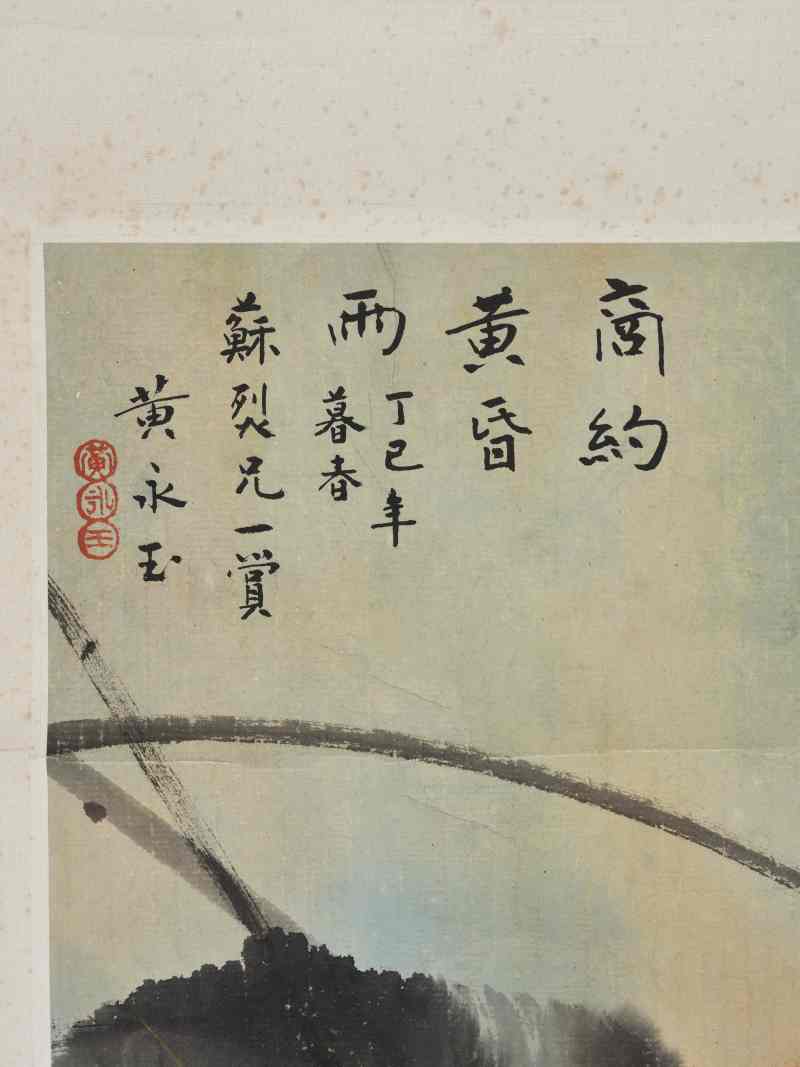 商約
黄昏
雨
丁巳年
暮春
蘇烈兄一賞
黄永玉
黄永玉